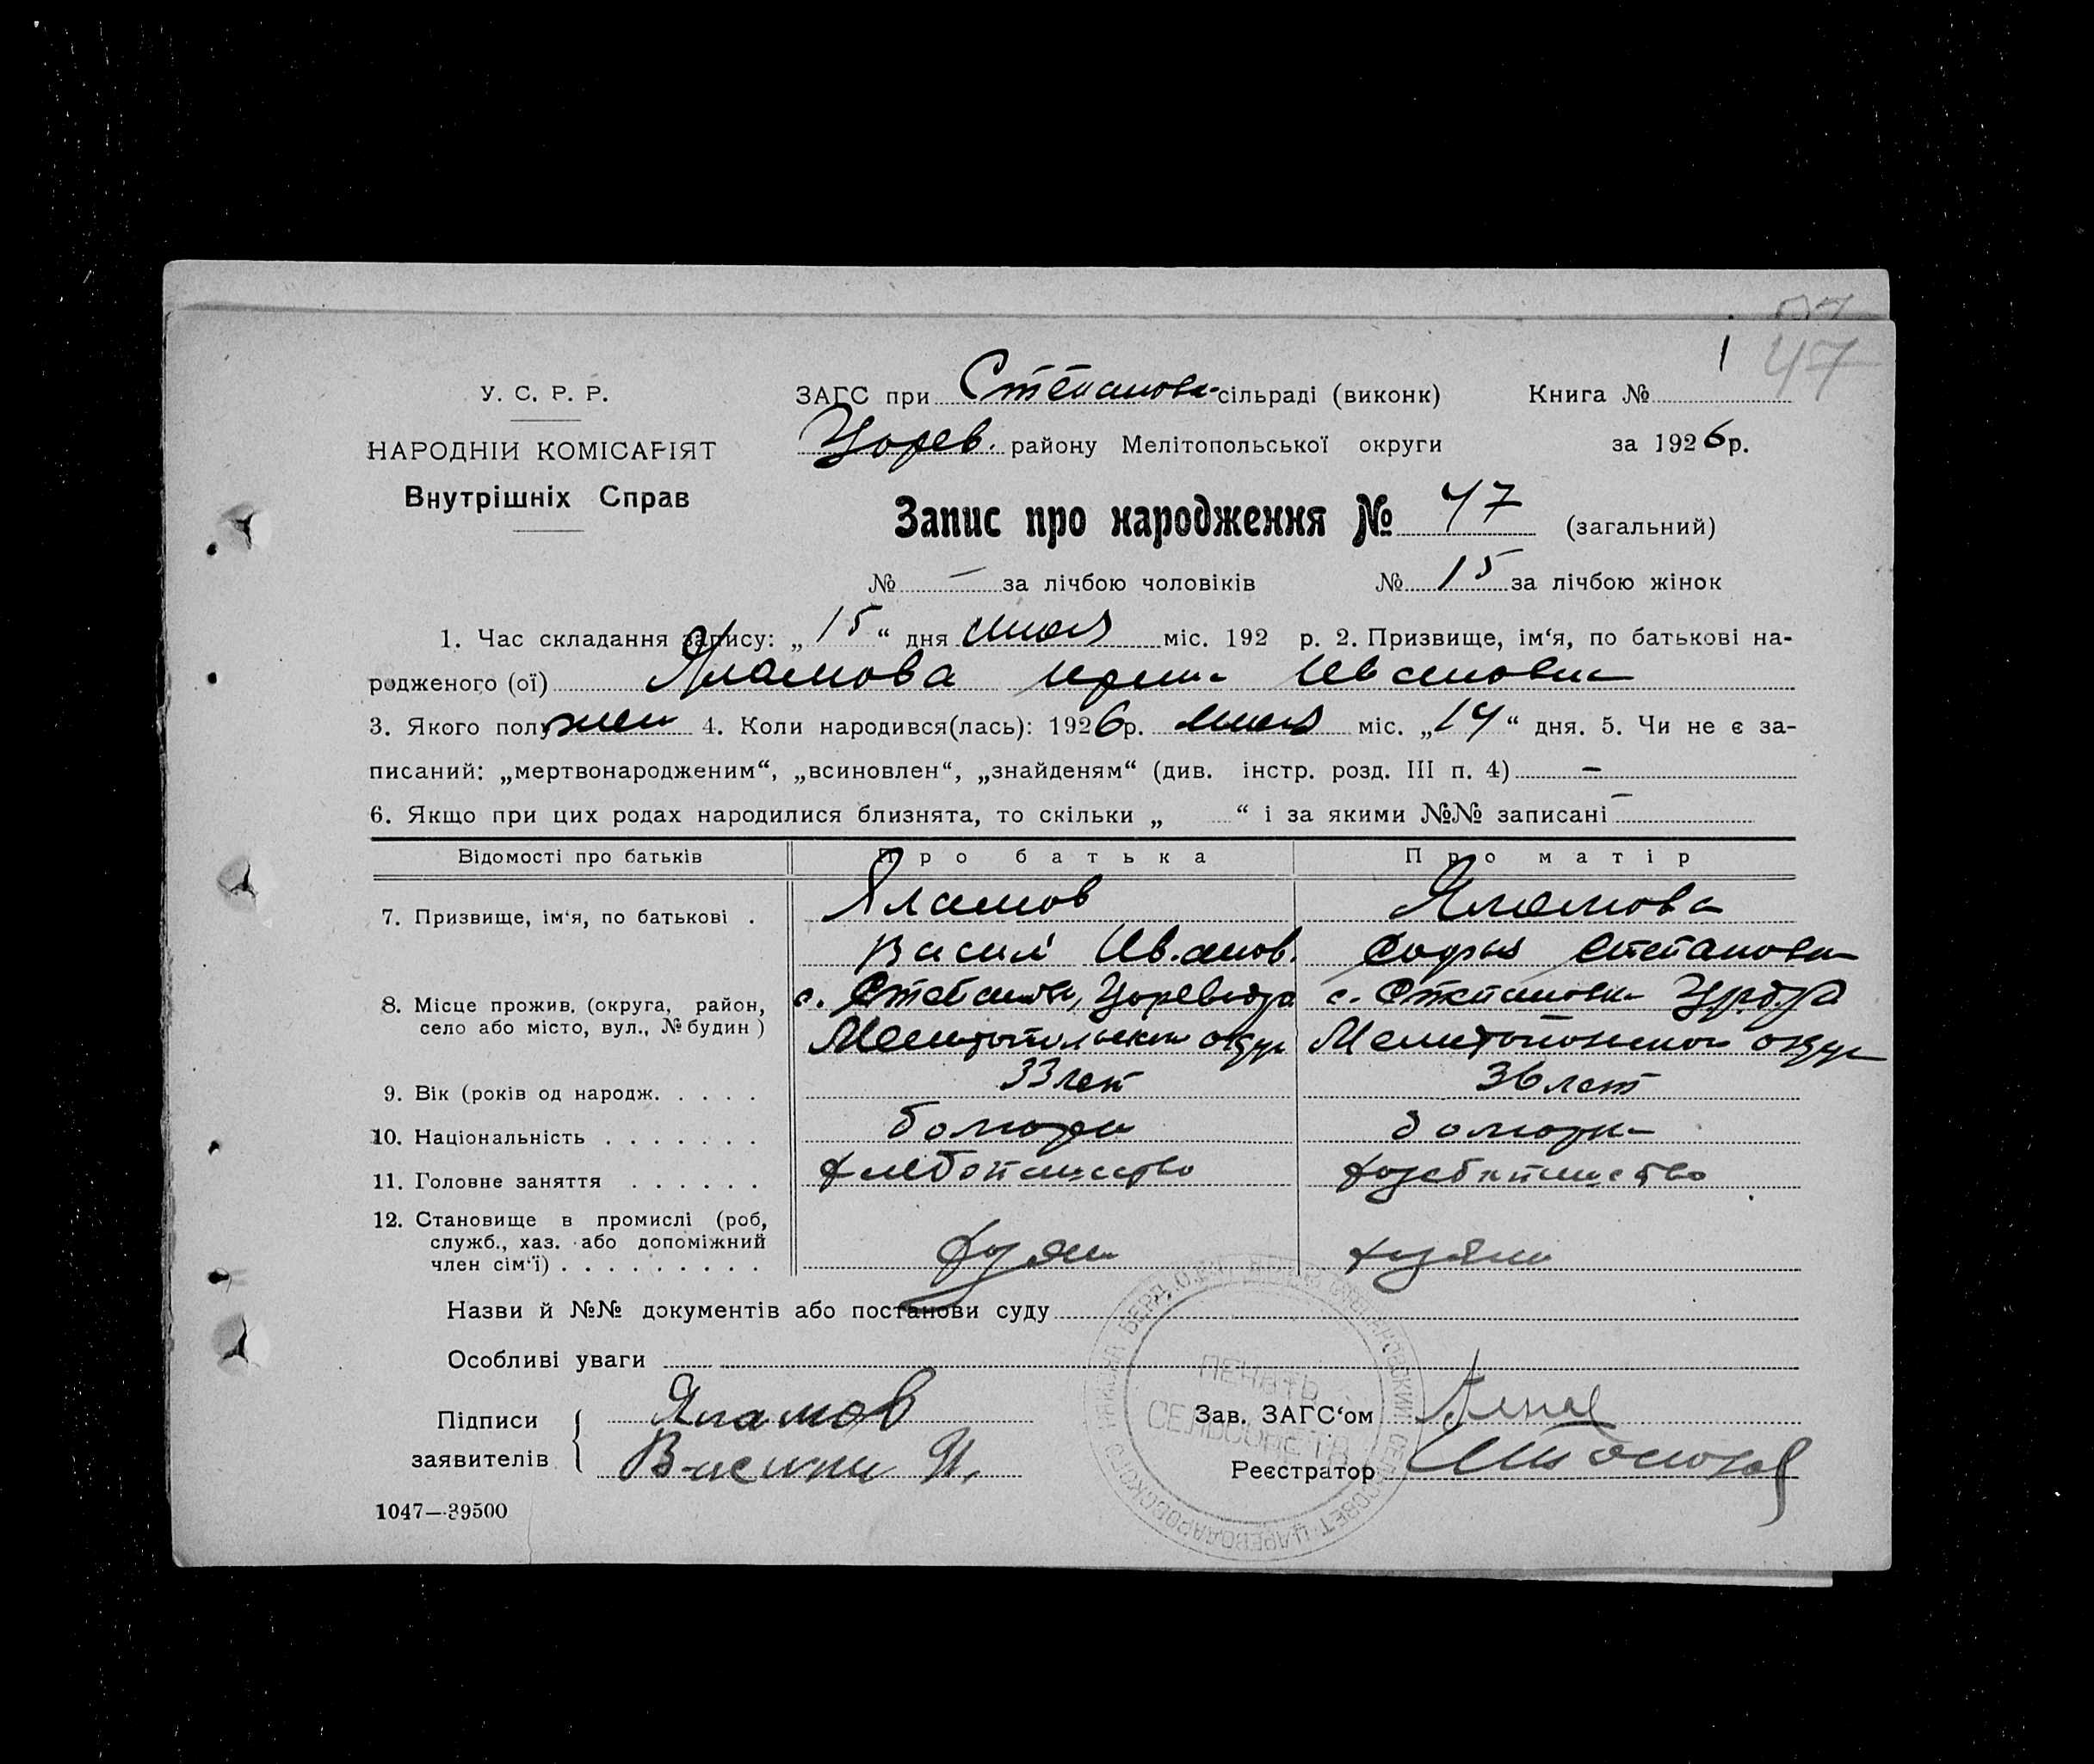 47
1
У. С. Р. Р.
НАРОДНІЙ КОМІСАРІЯТ
Внутрішніх Справ
ЗАГС при Степановс- сільраді (виконк) Книга №
Царев. району Мелітопольської округи за 1926 р.
Запис про народження № 47 (загальний)
№ — за лічбою чоловіків № 15 за лічбою жінок
1. Час складання запису: „15“ дня июля міс. 192 р. 2. Призвище, ім‘я, по батькові на-
родженого (ої) Яламова Ивановна
3. Якого полу жен 4. Коли народився(лась): 1926 р. июля міс. „14“ дня. 5. Чи не є за-
писаний: „мертвонародженим“, „всиновлен“, „знайденям“ (див. інстр. розд. III п. 4) —
6. Якщо при цих родах народилися близнята, то скільки „ “ і за якими №№ записані —
Відомості про батьків Про батька Про матір
7. Призвище, ім‘я, по батькові . Яламов Яламова
Васил Иванов. Софья Степановн
8. Місце прожив. (округа, район, с. Степановк, с. Степановк
село або місто, вул., № будин ) Мелитопольской округ Мелитопольской округ
9. Вік (років од народж. . . . . 33 лет 36 лет
10. Національність . . . . . . . болгари болгарк
11. Головне заняття . . . . . . хлебопашество хлебопашество
12. Становище в промислі (роб,
служб., хаз. або допоміжний хозяин хозяйк
член сім‘ї) . . . . . . . . .
Назви й №№ документів або постанови суду
Особливі уваги
Підписи Яламов Зав. ЗАГС‘ом
заявителів Василий И. Реєстратор
ПЕЧАТЬ
СЕЛЬСОВЕТА
1047—39500